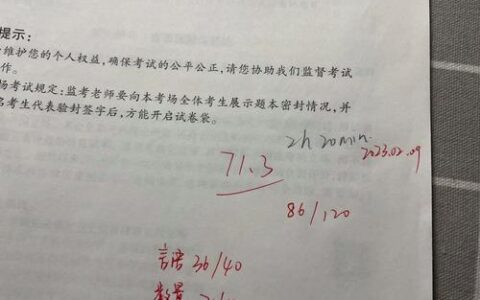 提示:
维护您的个人权益,确保考试的公平公正,请您协助我们监督考试
作。
场考试规定:监考老师要向本考场全体考生展示题本密封情况,并
名考生代表验封签字后,方能开启试卷袋。
2h 20min.
2023.02.09
71.3
86/120
言语 36/40
数量